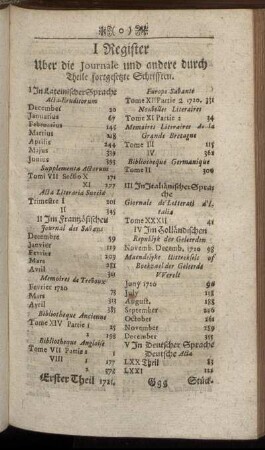 ( o )
I Register
Uber die Journale und andere durch
Theile fortgesetzte Schrifften.
I In Lateinischer Sprache
Acta Eruditorum
December 20
Januarius 67
Februarius 145
Martius 248
Aprilis 274
Majus 339
Junius 393
Supplementa Actorum
Tom VII Sectio X 171
XI 127
Acta Literaria Sueciæ
Trimestre I 201
II 345
II Im Frantzösischen
Journal des Savans
Decembre
Janvier 119
Fevrier 192
Mars 250
Avril
Memoires de Trevoux
Fevrier 1720
Mars 78
Avril 311
Bibliotheque Ancienne
Tome XIV Partie 1
2
Bibliotheque Angloise
Tome VII Partie 2
VIII 1 177
2 378
Europe Savante
Tome XI Partie 2 1720. 331
Nouvelles Literaires
Tome XI Partie 2 34
Memoires Literaires de la
Grande Bretagne
Tome III 115
IV 361
Bibliotheque Germanique
Tome II 306
III In Italiänischer Sprache
Giornale de'Letterati d'I-
talia
Tome XXXII 41
IV Im Holländischen
Republyk der Geleerden
Novemb. Decemb. 1720 98
Maendelykse Uittreksels of
Boekzael der Geleerde
VVerelt
Juny 1720
July 158
August. 183
September 206
October 281
November 259
December 155
V In Deutscher Sprache
Deutsche Acta
LXX Theil 83
LXXI 122
(Erster Theil 1721. Ggg Stück-